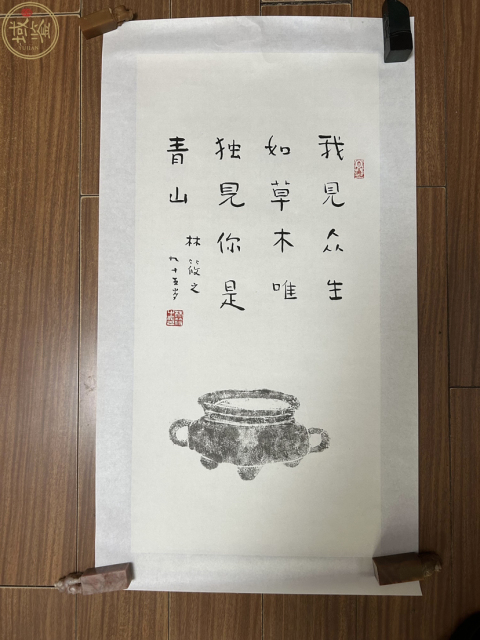 我見众生
如草木唯
独見你是
青山
林筱之
九十五岁
域鉴
YUJIAN